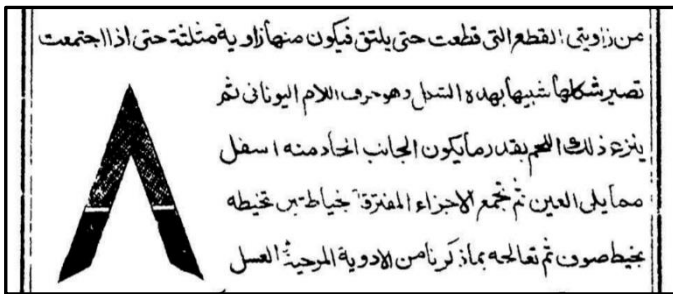 من زاويتى القطع التى قطعت حتى يلتق فيكون منها زاوية مثلثة حتى اذا اجتمعت
تصير شكلها شبيها بهذه الشكل وهو حرف اللام اليونانى ثم
ينزع ذلك اللحم بقدر مايكون الجانب الحاد منه اسفل
مما يلى العين ثم تجمع الاجزاء المفترقة بخياطتين تخيطه
بخيط صوف ثم تعالجه بماذكرنا من الادوية المرخية العسل